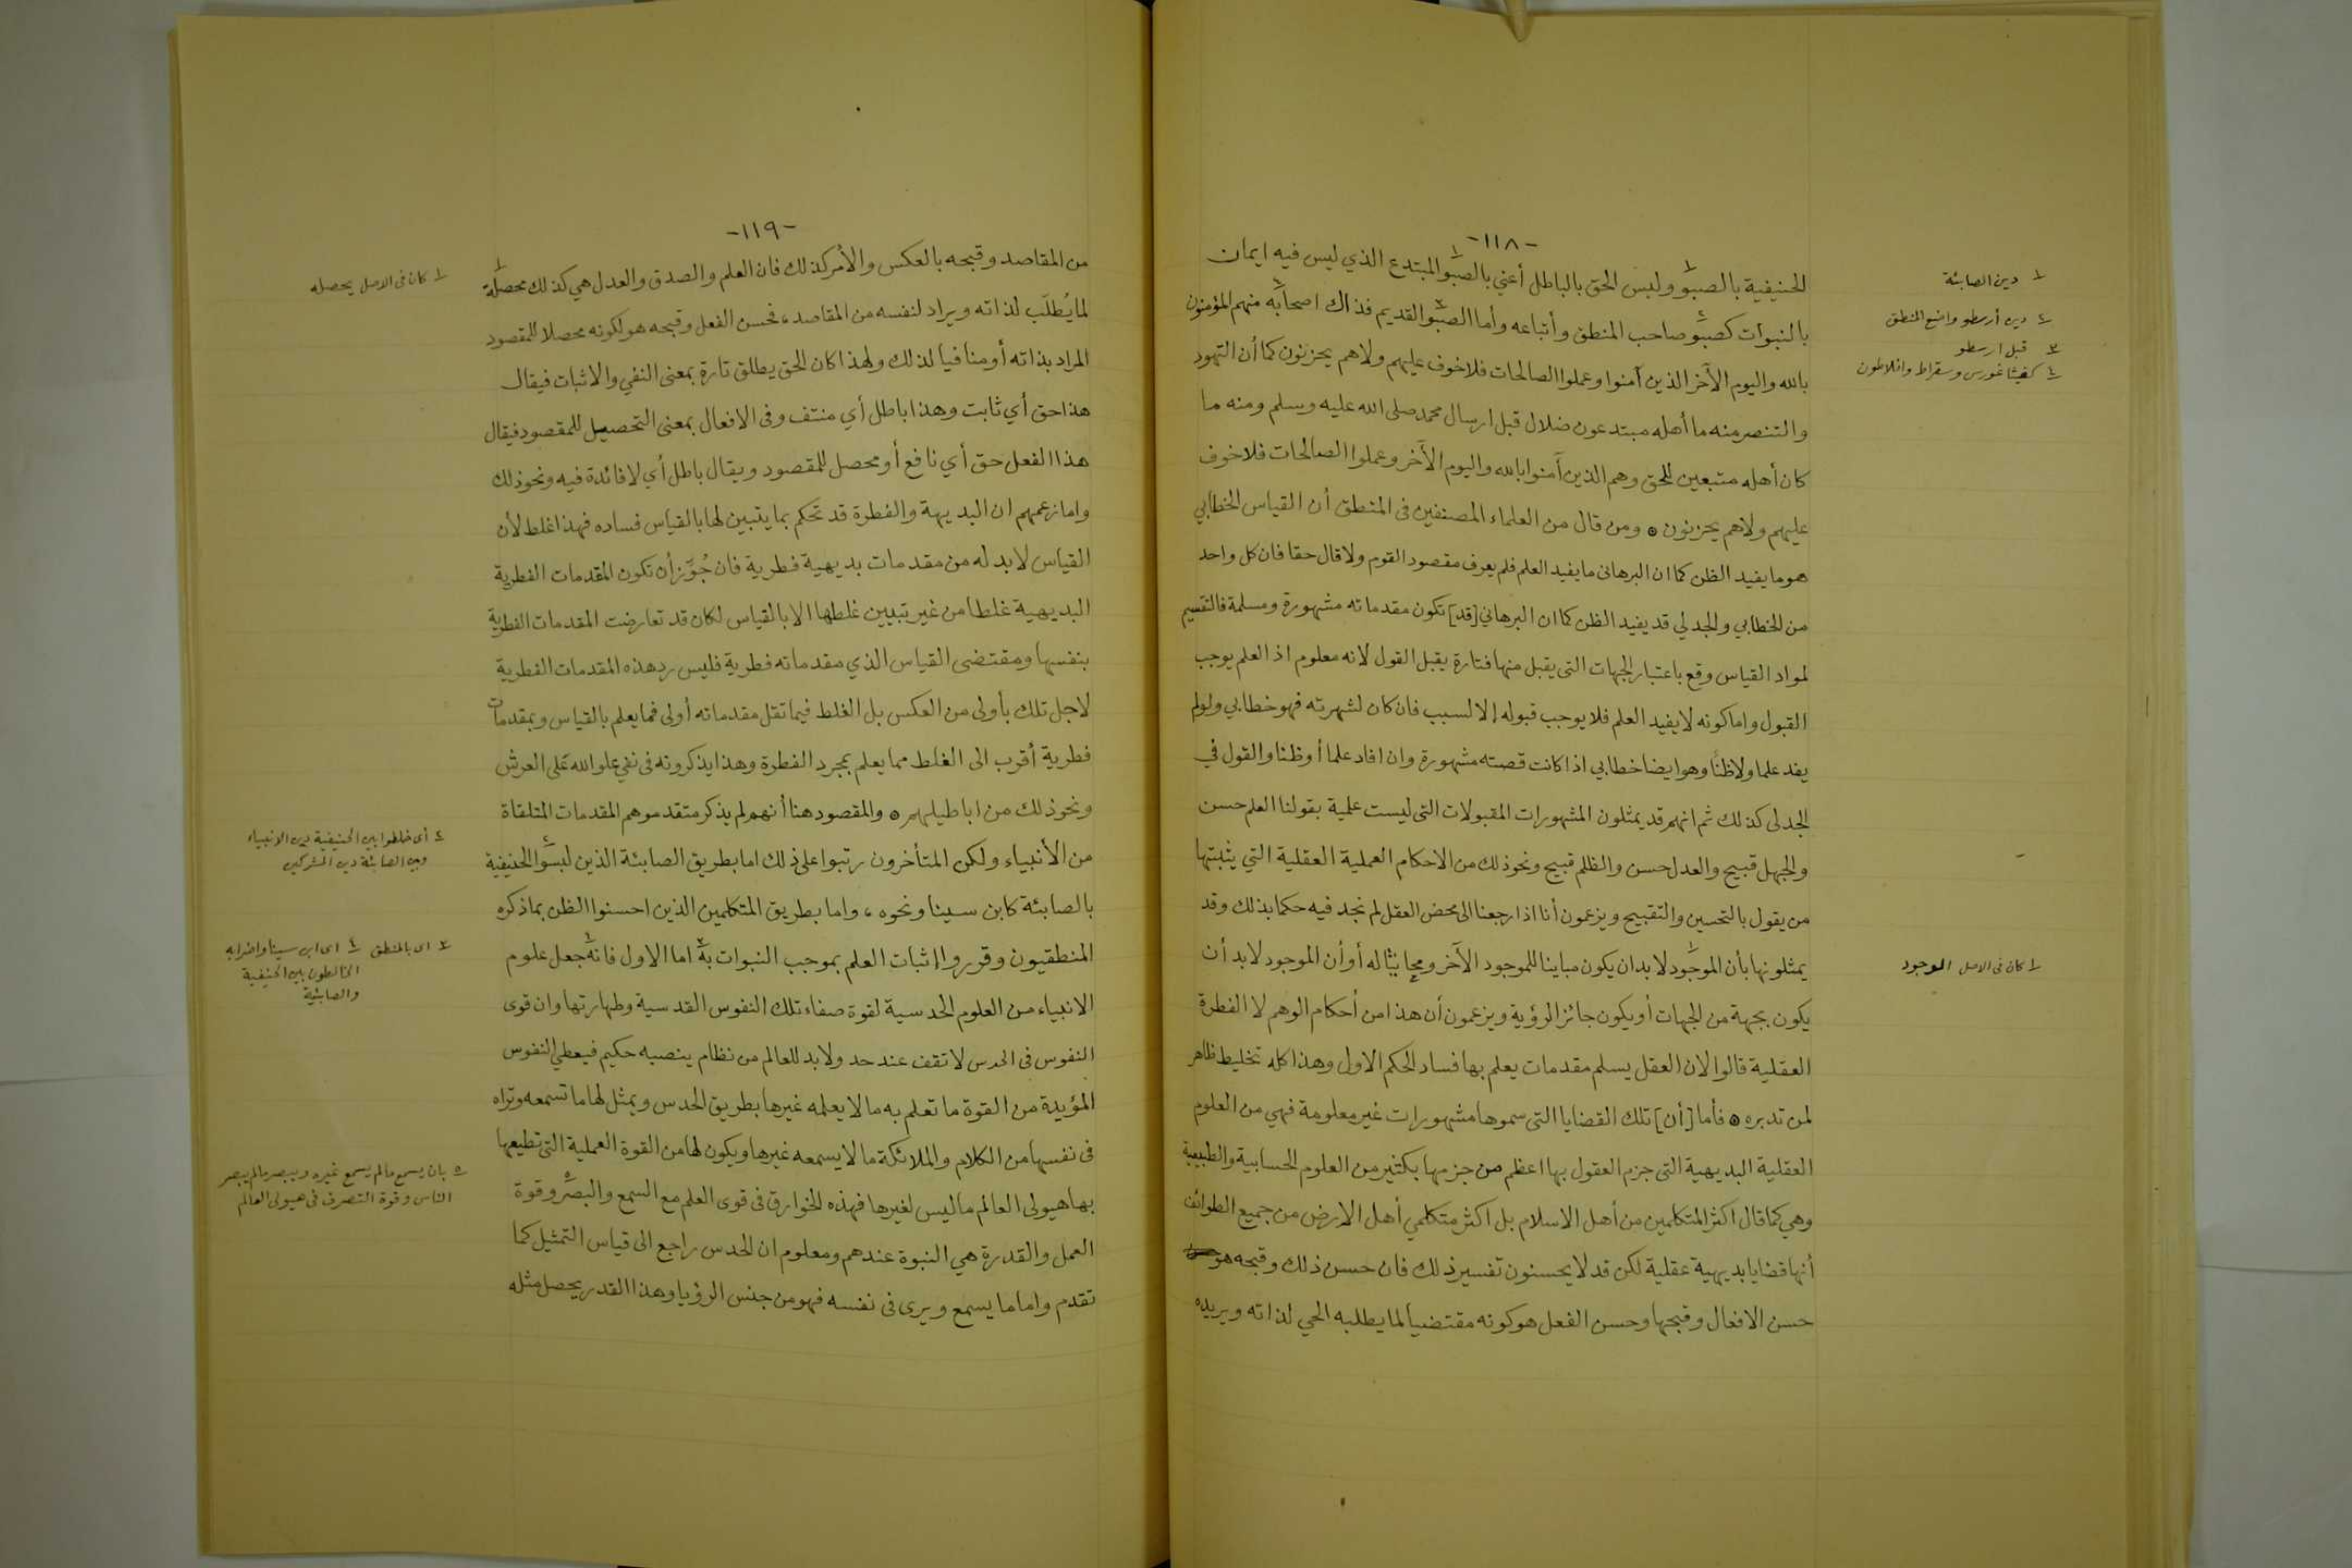 -١١٨-
الحنيفية بالصبو ولبس الحق بالباطل أعني بالصبو المبتدع الذي ليس فيه ايمان
بالنبوات كصبو صاحب المنطق وأتباعه وأما الصبو القديم فذاك اصحابه منهم المؤمنون
بالله واليوم الآخر الذين آمنوا وعملوا الصالحات فلا خوف عليهم ولا هم يحزنون كما أن التهود
والتنصر منه ما أهله مبتدعون ضلال قبل ارسال محمد صلى الله عليه وسلم ومنه ما
كان أهله متبعين للحق وهم الذين آمنوا بالله واليوم الآخر وعملوا الصالحات فلا خوف
عليهم ولا هم يحزنون ٥ ومن قال من العلماء المصنفين فى المنطق أن القياس الخطابي
هو ما يفيد الظن كما ان البرهانى ما يفيد العلم فلم يعرف مقصود القوم ولا قال حقا فان كل واحد
من الخطابي والجدلي قد يفيد الظن كما ان البرهاني [قد] تكون مقدماته مشهورة ومسلمة فالتقسيم
لمواد القياس وقع باعتبار الجهات التى يقبل منها فتارة يقبل القول لانه معلوم اذ العلم يوجب
القبول واما كونه لا يفيد العلم فلا يوجب قبوله إلا لسبب فان كان لشهرته فهو خطابي ولو لم
يفد علما ولا ظنا وهو ايضا خطابي اذا كانت قصته مشهورة وان افاد علما أو ظنا والقول في
الجدلى كذلك ثم انهم قد يمثلون المشهورات المقبولات التى ليست علمية بقولنا العلم حسن
والجهل قبيح والعدل حسن والظلم قبيح ونحو ذلك من الاحكام العملية العقلية التي يثبتها
من يقول بالتحسين والتقبيح ويزعمون أنا اذا رجعنا الى محض العقل لم نجد فيه حكما بذلك وقد
يمثلونها بأن الموجود لا بد ان يكون مباينا للموجود الآخر ومحايثا له أو أن الموجود لا بد أن
يكون بجهة من الجهات أو يكون جائز الرؤية ويزعمون أن هذا من أحكام الوهم لا الفطرة
العقلية قالوا لان العقل يسلم مقدمات يعلم بها فساد الحكم الاول وهذا كله تخليط ظاهر
لمن تدبره ٥ فأما [أن] تلك القضايا التى سموها مشهورات غير معلومة فهي من العلوم
العقلية البديهية التى جزم العقول بها اعظم من جزمها بكثير من العلوم الحسابية والطبيعية
وهي كما قال اكثر المتكلمين من أهل الاسلام بل اكثر متكلمي أهل الارض من جميع الطوائف
أنها قضايا بديهية عقلية لكن قد لا يحسنون تفسير ذلك فان حسن ذلك وقبحه هو
حسن الافعال وقبحها وحسن الفعل هو كونه مقتضيا لما يطلبه الحي لذاته ويريده
١ دين الصابئة
٢ دين أرسطو واضع المنطق
٣ قبل ارسطو
٤ كفيثاغورس وسقراط وافلاطون
١ كان فى الاصل الموجود
-١١٩-
من المقاصد وقبحه بالعكس والأمر كذلك فان العلم والصدق والعدل هي كذلك محصلة
لما يُطلَب لذاته ويراد لنفسه من المقاصد، فحسن الفعل وقبحه هو لكونه محصلا للمقصود
المراد بذاته أو منافيا لذلك ولهذا كان الحق يطلق تارة بمعنى النفي والاثبات فيقال
هذا حق أي ثابت وهذا باطل أي منتف وفى الافعال بمعنى التحصيل للمقصود فيقال
هذا الفعل حق أي نافع أو محصل للمقصود ويقال باطل أي لا فائدة فيه ونحو ذلك
واما زعمهم ان البديهة والفطرة قد تحكم بما يتبين لها بالقياس فساده فهذا غلط لأن
القياس لا بد له من مقدمات بديهية فطرية فان جُوّز أن تكون المقدمات الفطرية
البديهية غلطا من غير تبيين غلطها الا بالقياس لكان قد تعارضت المقدمات الفطرية
بنفسها ومقتضى القياس الذي مقدماته فطرية فليس رد هذه المقدمات الفطرية
لاجل تلك بأولى من العكس بل الغلط فيما تقل مقدماته أولى فما يعلم بالقياس وبمقدمات
فطرية أقرب الى الغلط مما يعلم بمجرد الفطرة وهذا يذكرونه فى نفي علو الله على العرش
ونحو ذلك من اباطيلهم ٥ والمقصود هنا أنهم لم يذكر متقدموهم المقدمات المتلقاة
من الأنبياء ولكن المتأخرون رتبوا على ذلك اما بطريق الصابئة الذين لبسوا الحنيفية
بالصابئة كابن سينا ونحوه، واما بطريق المتكلمين الذين احسنوا الظن بما ذكره
المنطقيون وقرروا إثبات العلم بموجب النبوات به اما الاول فانه جعل علوم
الانبياء من العلوم الحدسية لقوة صفاء تلك النفوس القدسية وطهارتها وان قوى
النفوس فى الحدس لا تقف عند حد ولا بد للعالم من نظام ينصبه حكيم فيعطي النفوس
المؤيدة من القوة ما تعلم به ما لا يعلمه غيرها بطريق الحدس ويمثل لها ما تسمعه وتراه
فى نفسها من الكلام والملائكة ما لا يسمعه غيرها ويكون لها من القوة العملية التى تطيعها
بها هيولى العالم ما ليس لغيرها فهذه الخوارق فى قوى العلم مع السمع والبصر وقوة
العمل والقدرة هي النبوة عندهم ومعلوم ان الحدس راجع الى قياس التمثيل كما
تقدم واما ما يسمع ويرى فى نفسه فهو من جنس الرؤيا وهذا القدر يحصل مثله
١ كان فى الاصل يحصله
٢ أى خلطوا بين الحنيفية دين الانبياء
وبين الصابئة دين المشركين
٣ اى بالمنطق ٤ اى ابن سينا واضرابه
الخالطون بين الحنيفية
والصابئية
٥ بان يسمع ما لم يسمع غيره ويبصر ما لم يبصر
الناس وقوة التصرف فى هيولى العالم